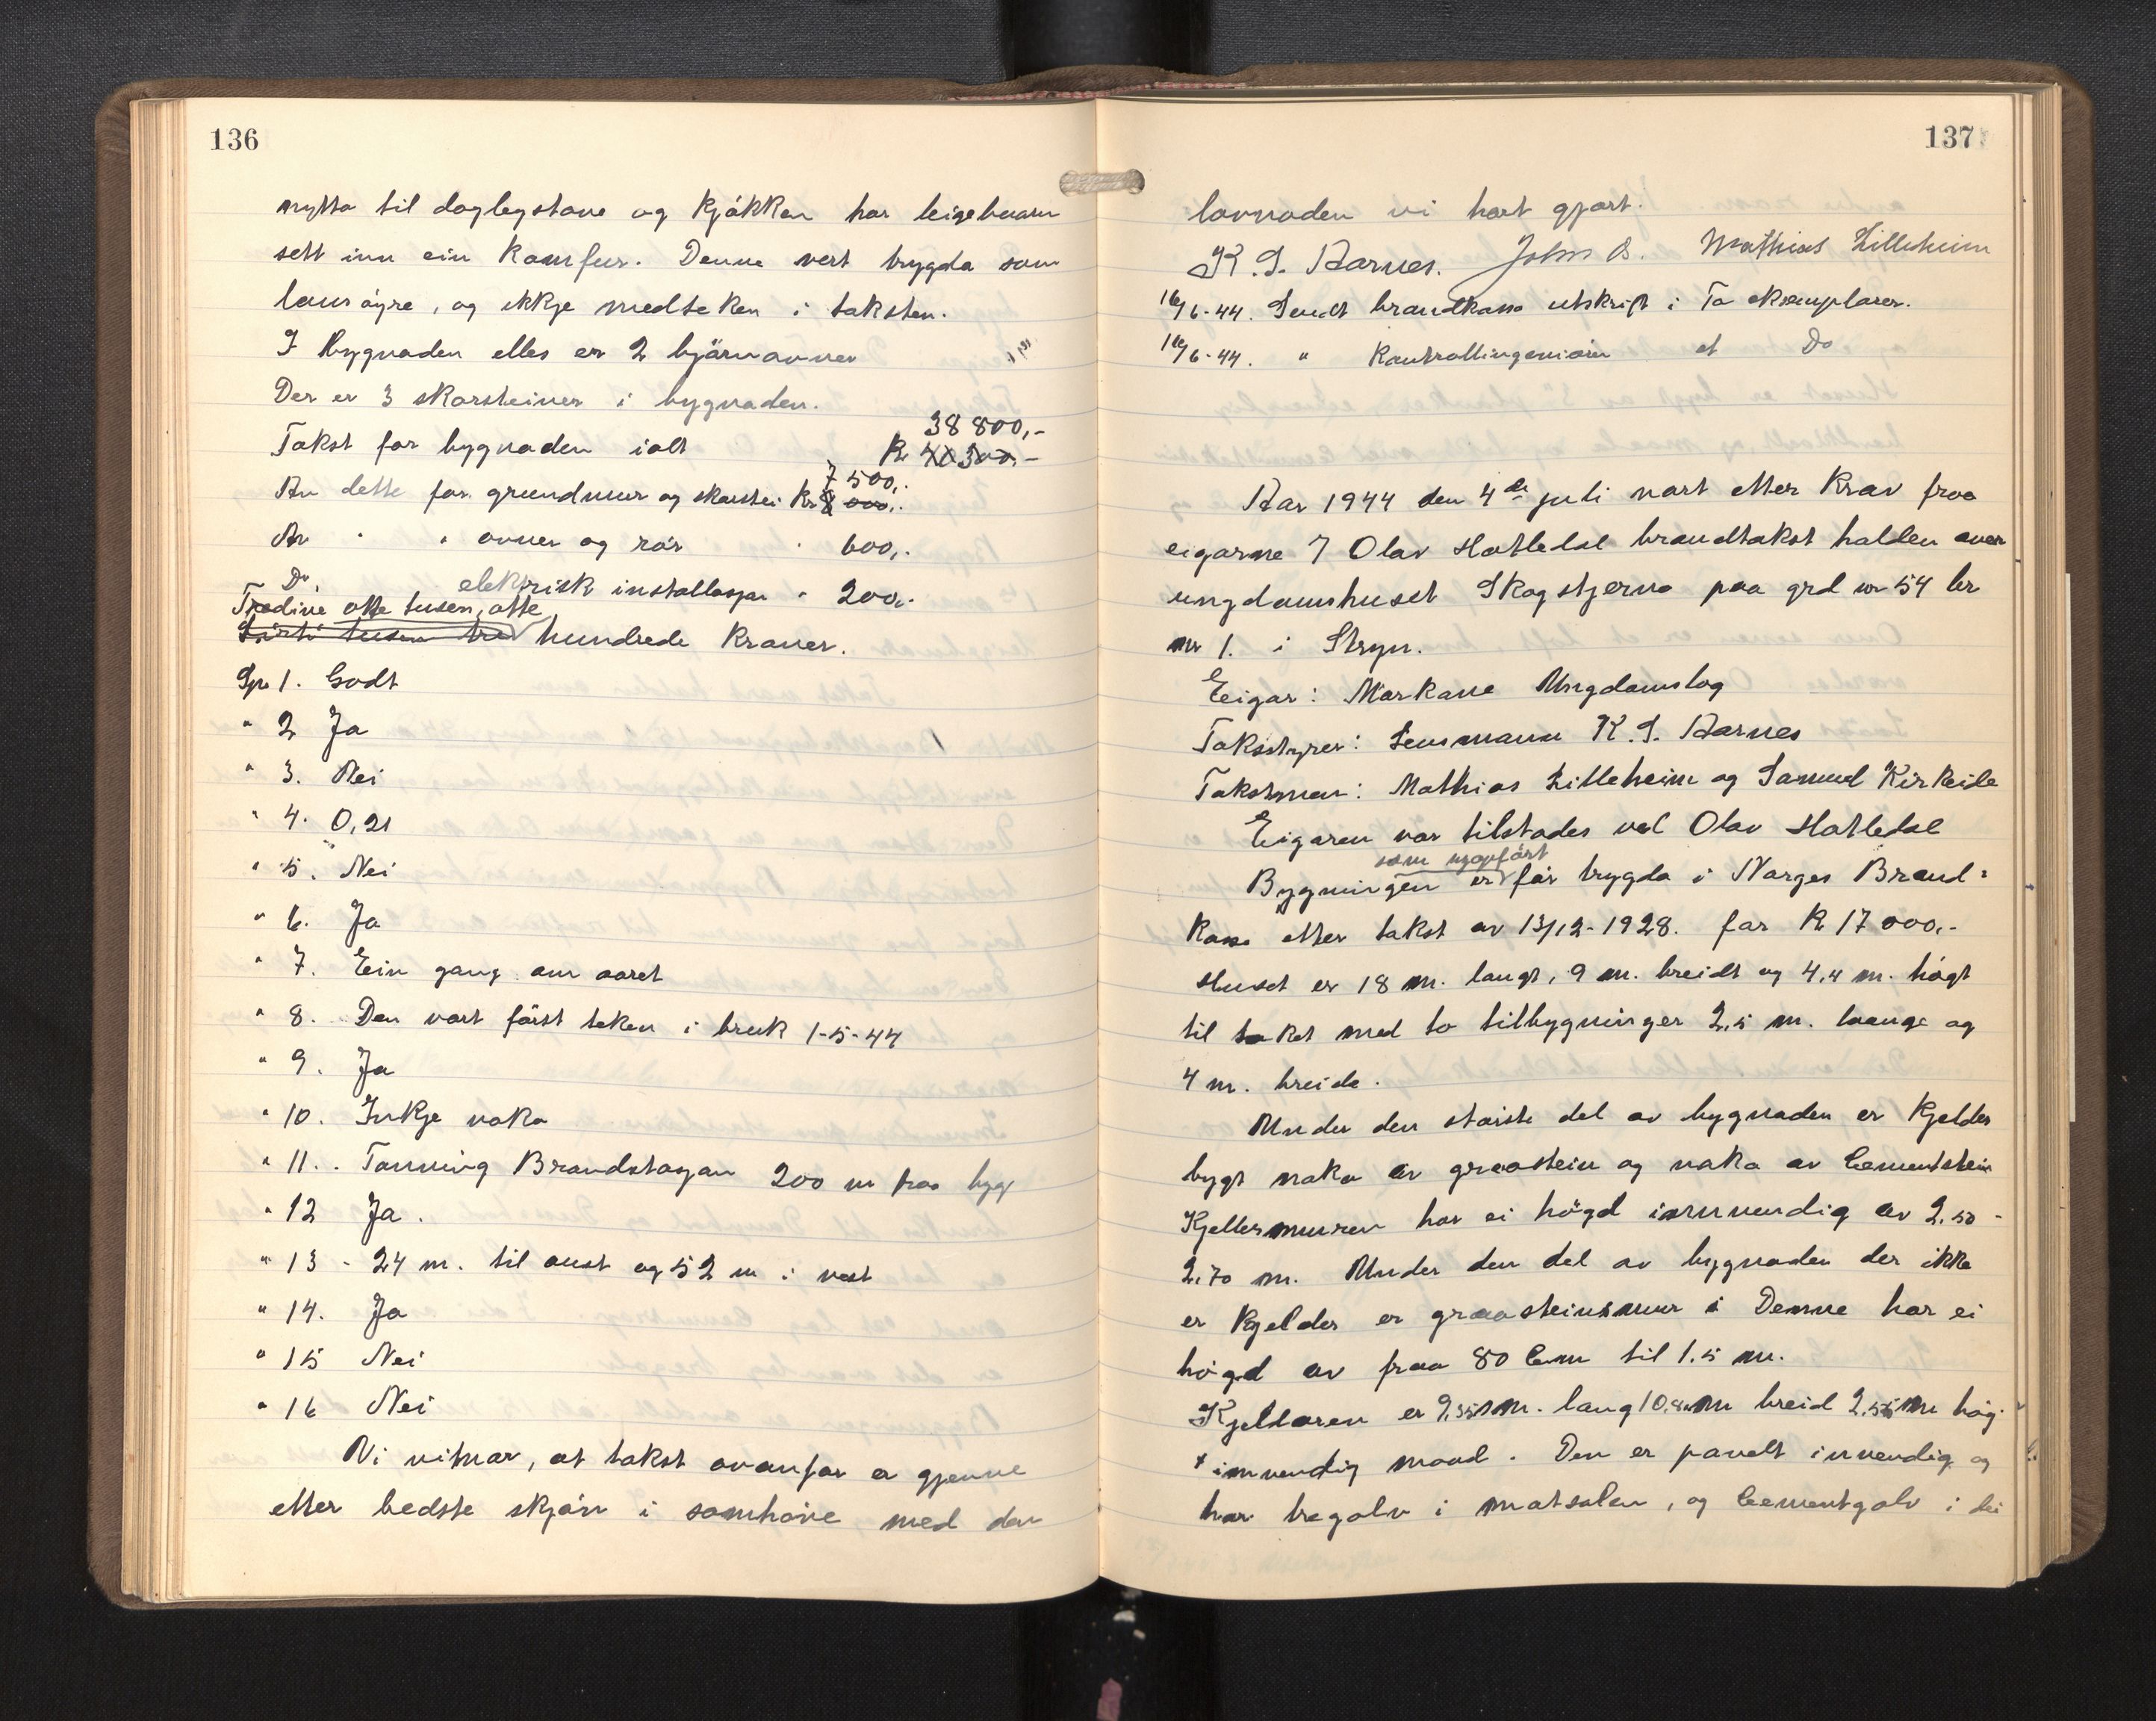 136
nytta til daglegstove og kjøkken har leigebuarn
sett inn ein komfur. Denne vert trygda som
lausøyre, og ikkje medteken i taksten.
I bygnaden elles er 2 bjørnovner
Der er 3 skorsteiner i bygnaden.
38 800,-
Takst for bygnaden ialt Kr 40300,-
7 500,-
Av dette for grundmur og skorstei Kr 8 000,-
Av " " ovner og rør " 600,-
Do. elektrisk installasjon " 200,-
Tredive otte tusen, otte
Førti tusen tre hundrede kroner.
Sp 1. Godt
" 2 Ja
" 3. Nei
" 4. 0,21
" 5. Nei
" 6. Ja
" 7. Ein gang om aaret
" 8. Den vart først teken i bruk 1-5-44
" 9. Ja
" 10. Inkje noko
" 11. Tonning Brandstasjon 200 m fraa bygg
" 12 Ja.
" 13 - 24 m. til aust og 52 m i vest
" 14. Ja
" 15 Nei
" 16 Nei
Vi vitnar, at takst ovanfor er gjenne
etter bedste skjøn i samhøve med den
137
lovnaden vi havt gjort.
K. S. Aarnes. John B. Mathias Lilleheim
16/6-44. Sendt brandkassa utskrift i To eksemplarer.
16/6-44. " Kontrollingeniøren et Do
Aar 1944 den 4de juli vart etter krav fraa
eigarne v/ Olav Hatledal brandtakst halden over
ungdomshuset Skogstjerna paa grd nr 54 br
nr 1. i Stryn.
Eigar: Markane Ungdomslag
Takstyrer: Lensmann K. S. Aarnes
Takstmen: Mathias Lilleheim og Samuel Kirkeide
Eigaren var tilstades ved Olav Hatledal
som uoppført
Bygningen er før trygda i Norges Brand-
kasse etter takst av 13/12-1928. for Kr 17 000,-
Huset er 18 m. langt, 9 m. breidt og 4,4 m. høgt
til taket med to tilbygninger 2,5 m. lange og
4 m. breide.
Under den største del av bygnaden er kjelder
bygt noko av graastein og noko av Cementstein
Kjellermuren har ei høgd innvendig av 2.50 -
2.70 m. Under den del av bygnaden der ikke
er kjelder er graasteinsmur i Denne har ei
høgd av fraa 80 Cm til 1.5 m.
Kjeldaren er 9,35 m. lang 10,8 m breid 2,55 m høg.
innvendig maal. Den er panelt innvendig og
har tregolv i matsalen, og Cementgolv i dei